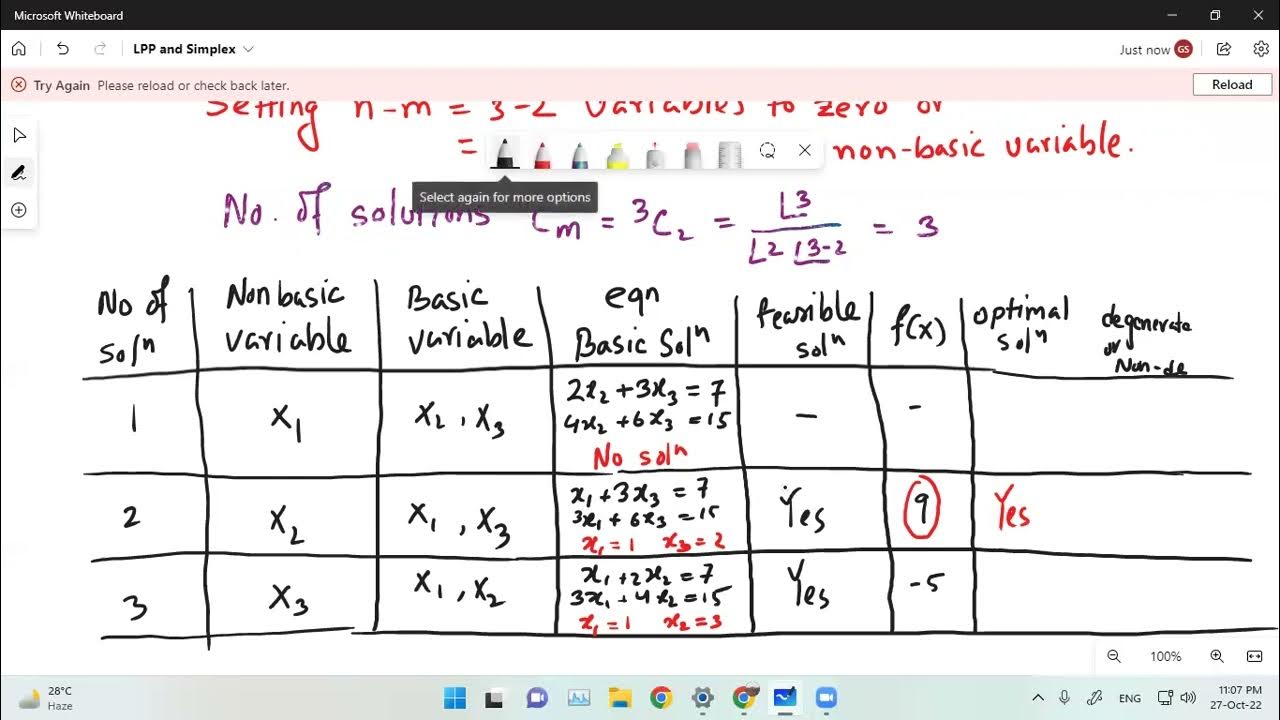 Microsoft Whiteboard
LPP and Simplex
Just now GS
Try Again Please reload or check back later.
Reload
Setting n-m = 3-2 variables to zero or
= non-basic variable.
Select again for more options
No. of solutions Cm = ³C₂ = L3 / L2 L3-2 = 3
No of soln
Nonbasic variable
Basic variable
eqn Basic Soln
feasible soln
f(x)
optimal soln
degenerate or Non-de
1
x₁
x₂, x₃
2x₂ + 3x₃ = 7
4x₂ + 6x₃ = 15
No soln
-
-
2
x₂
x₁, x₃
x₁ + 3x₃ = 7
3x₁ + 6x₃ = 15
x₁ = 1 x₃ = 2
Yes
9
Yes
3
x₃
x₁, x₂
x₁ + 2x₂ = 7
3x₁ + 4x₂ = 15
x₁ = 1 x₂ = 3
Yes
-5
100%
28°C
Haze
ENG
11:07 PM
27-Oct-22